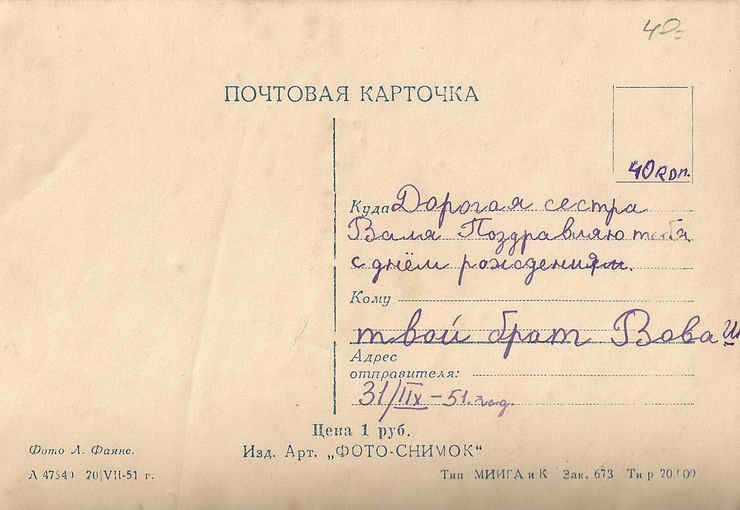 40=
ПОЧТОВАЯ КАРТОЧКА
40коп.
Куда Дорогая сестра
Валя Поздравляю тебя
с днём рождениям.
Кому
твой брат Вова Ш
Адрес
отправителя:
31/IIX-51.год.
Цена 1 руб.
Фото Л. Фаянс. Изд. Арт. „ФОТО-СНИМОК“
Л 47540 20/VII-51 г. Тип МИИГА и К Зак. 673